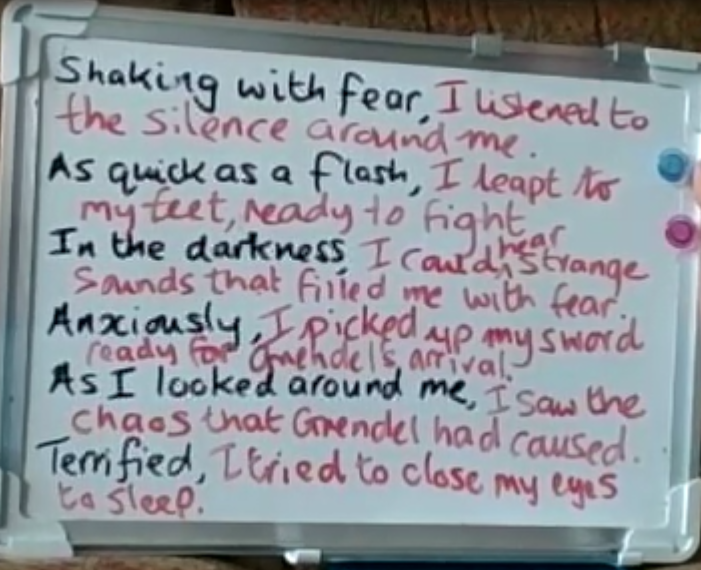 Shaking with fear, I listened to
the silence around me.
As quick as a flash, I leapt to
my feet, ready to fight
In the darkness, I could hear strange
sounds that filled me with fear.
Anxciously, I picked up my sword
ready for Grendel's arrival.
As I looked around me, I saw the
chaos that Grendel had caused.
Terrified, I tried to close my eyes
to sleep.